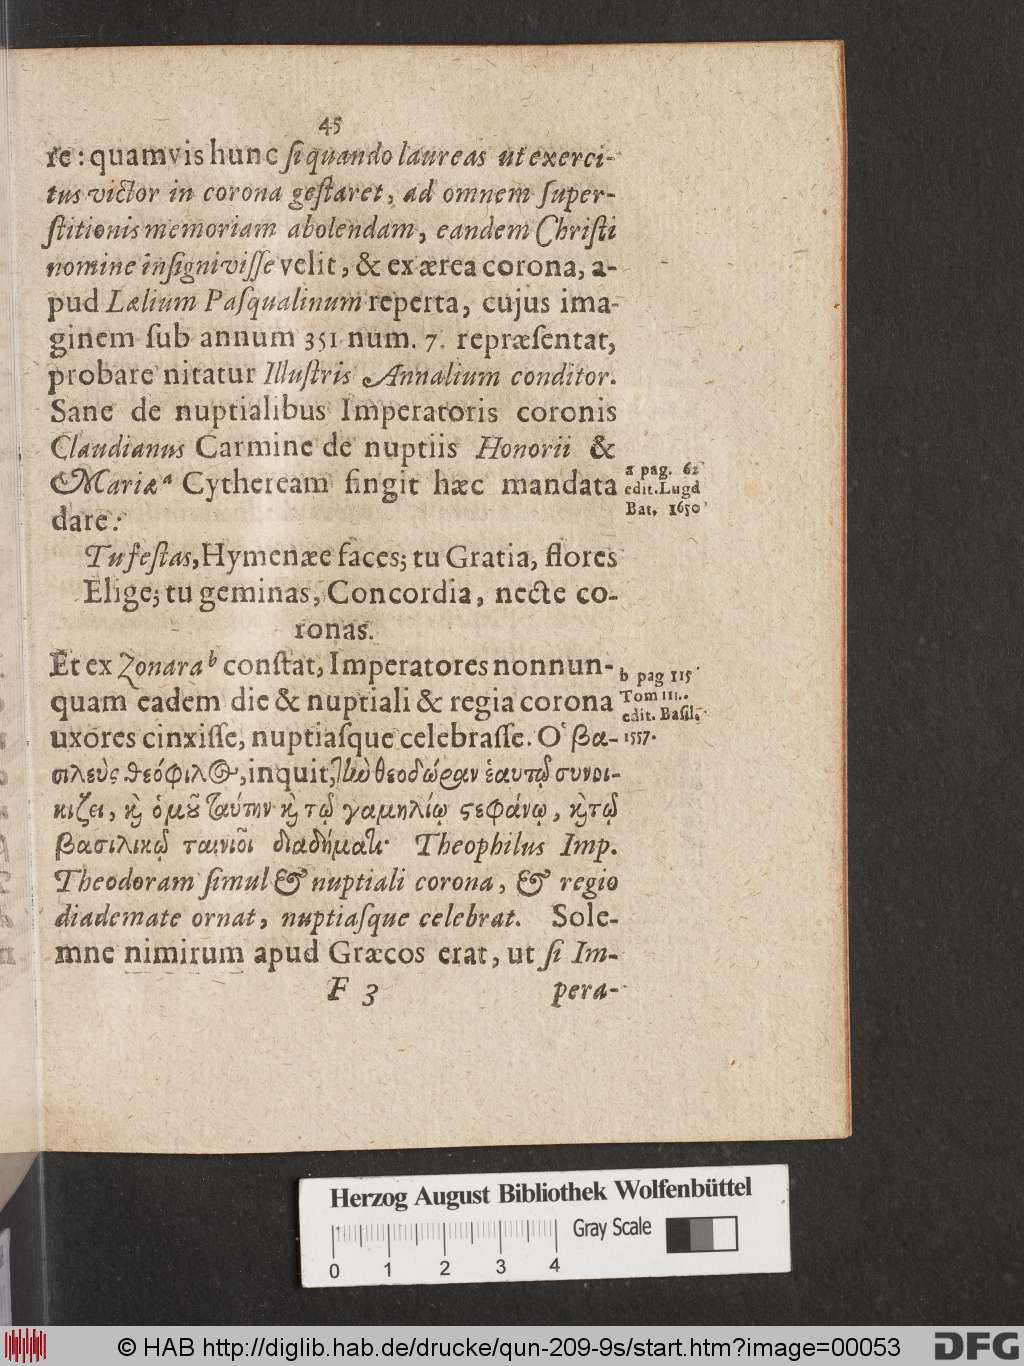 45
re: quamvis hunc ſi quando laureas ut exerci-
tus victor in corona geſtaret, ad omnem ſuper-
ſtitionis memoriam abolendam, eandem Chriſti
nomine inſigniviſſe velit, & ex ærea corona, a-
pud Lælium Paſqualinum reperta, cujus ima-
ginem ſub annum 351 num. 7. repræſentat,
probare nitatur Illuſtris Annalium conditor.
Sane de nuptialibus Imperatoris coronis
Claudianus Carmine de nuptiis Honorii &
Mariæ a Cytheream fingit hæc mandata
dare:
a pag. 62
edit. Lugd
Bat. 1650
Tu feſtas, Hymenæe faces; tu Gratia, flores
Elige; tu geminas, Concordia, necte co-
ronas.
Et ex Zonara b conſtat, Imperatores nonnun-
quam eadem die & nuptiali & regia corona
uxores cinxiſſe, nuptiaſque celebraſſe. Ὁ βα-
b pag 115
Tom III.
edit. Baſil.
1557.
σιλεὺς θεόφιλος, inquit, τὴν θεοδώραν ἑαυτῷ συνοι-
κίζει, καὶ ὁμοῦ ταύτην καὶ τῷ γαμηλίῳ στεφάνῳ, καὶ τῷ
βασιλικῷ ταινιοῖ διαδήματι· Theophilus Imp.
Theodoram ſimul & nuptiali corona, & regio
diademate ornat, nuptiaſque celebrat. Sole-
mne nimirum apud Græcos erat, ut ſi Im-
F 3 pera-
Herzog August Bibliothek Wolfenbüttel
Gray Scale
0 1 2 3 4
© HAB http://diglib.hab.de/drucke/qun-209-9s/start.htm?image=00053
DFG